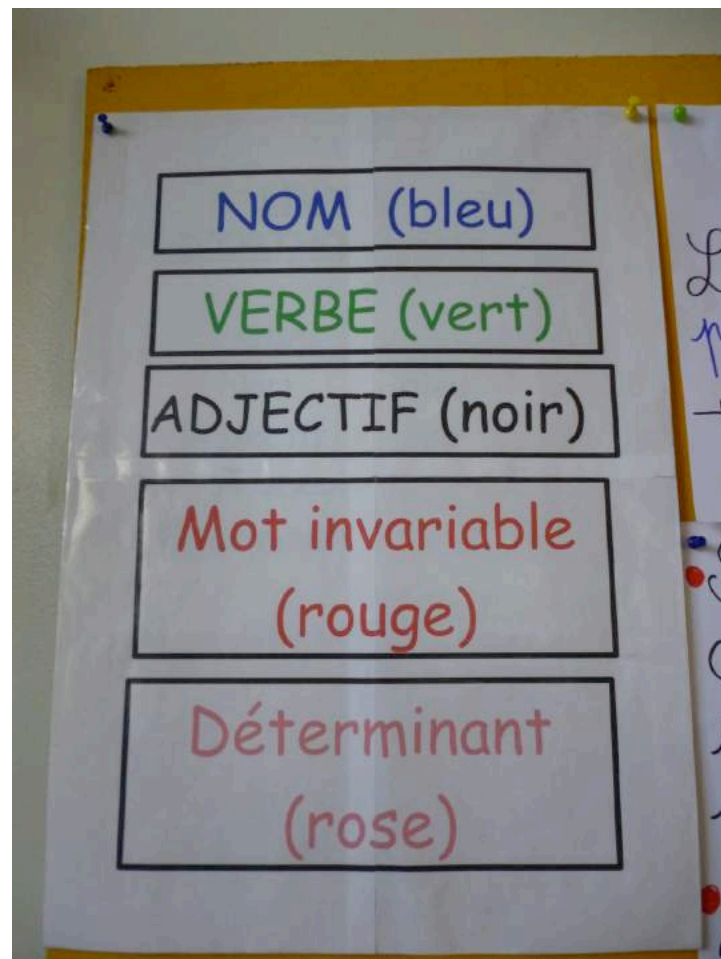 NOM (bleu)
VERBE (vert)
ADJECTIF (noir)
Mot invariable
(rouge)
Déterminant
(rose)